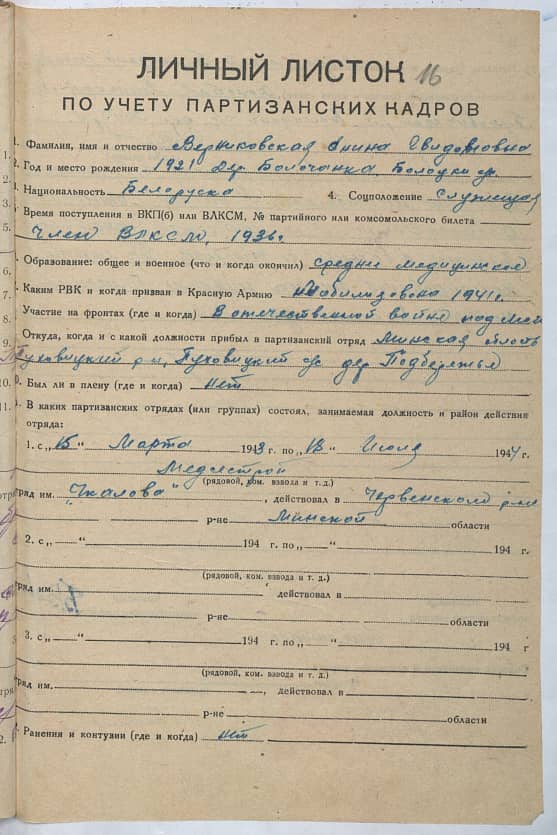 ЛИЧНЫЙ ЛИСТОК 16
ПО УЧЕТУ ПАРТИЗАНСКИХ КАДРОВ
1. Фамилия, имя и отчество Верниковская Нина
2. Год и место рождения 1921 дер. Болочанка,
3. Национальность Белоруска 4. Соцположение служащая
5. Время поступления в ВКП(б) или ВЛКСМ, № партийного или комсомольского билета
Член ВЛКСМ, 1936г.
6. Образование: общее и военное (что и когда окончил) средне медицинское
7. Каким РВК и когда призван в Красную Армию мобилизована 1941 г.
8. Участие на фронтах (где и когда) В отечественной войне под
9. Откуда, когда и с какой должности прибыл в партизанский отряд Минская область
Пуховицкий р-н, Пуховицкий с/с дер Подбережье
10. Был ли в плену (где и когда) нет
11. В каких партизанских отрядах (или группах) состоял, занимаемая должность и район действия
отряда:
1. с „15" Марта 1943 г. по „13" Июля 1944 г.
Медсестрой
(рядовой, ком. взвода и т. д.)
отряд им. "Чкалова", действовал в Червенском р-не
р-не Минской области
2. с „—" 194 г. по „—" 194 г.
(рядовой, ком. взвода и т. д.)
отряд им. , действовал в
р-не области
3. с „—" 194 г. по „—" 194 г
(рядовой, ком. взвода и т. д.)
отряд им. , действовал в
р-не области
2. Ранения и контузии (где и когда) нет